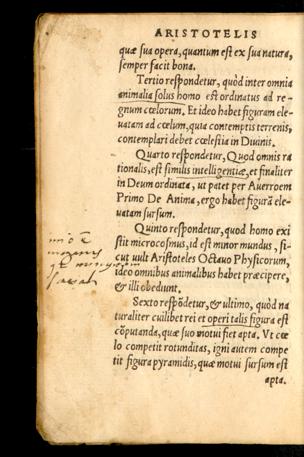 ARISTOTELIS
quæ sua opera, quantum est ex sua natura,
semper facit bona.
Tertio respondetur, quòd inter omnia
animalia solus homo est ordinatus ad re-
gnum cœlorum. Et ideo habet figuram ele-
uatam ad cœlum, quia contemptis terrenis,
contemplari debet cœlestia in Diuinis.
Quarto respondetur, Quod omnis ra
tionalis, est similis intelligentiæ, et finaliter
in Deum ordinata, ut patet per Auerroem
Primo De Anima, ergo habet figurã ele-
uatam sursum.
Quinto respondetur, quod homo exi
stit microcosmus, id est minor mundus, si-
cut uult Aristoteles Octauo Physicorum,
ideo omnibus animalibus habet præcipere,
& illi obediunt.
Sexto respõdetur, & ultimo, quòd na
turaliter cuilibet rei et operi talis figura est
cõputanda, quæ suo motui fiet apta. Vt cœ
lo competit rotunditas, igni autem compe
tit figura pyramidis, quæ motui sursum est
apta.